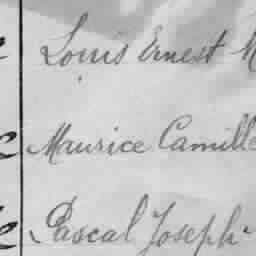 Louis Ernest M
Maurice Camille
Pascal Joseph